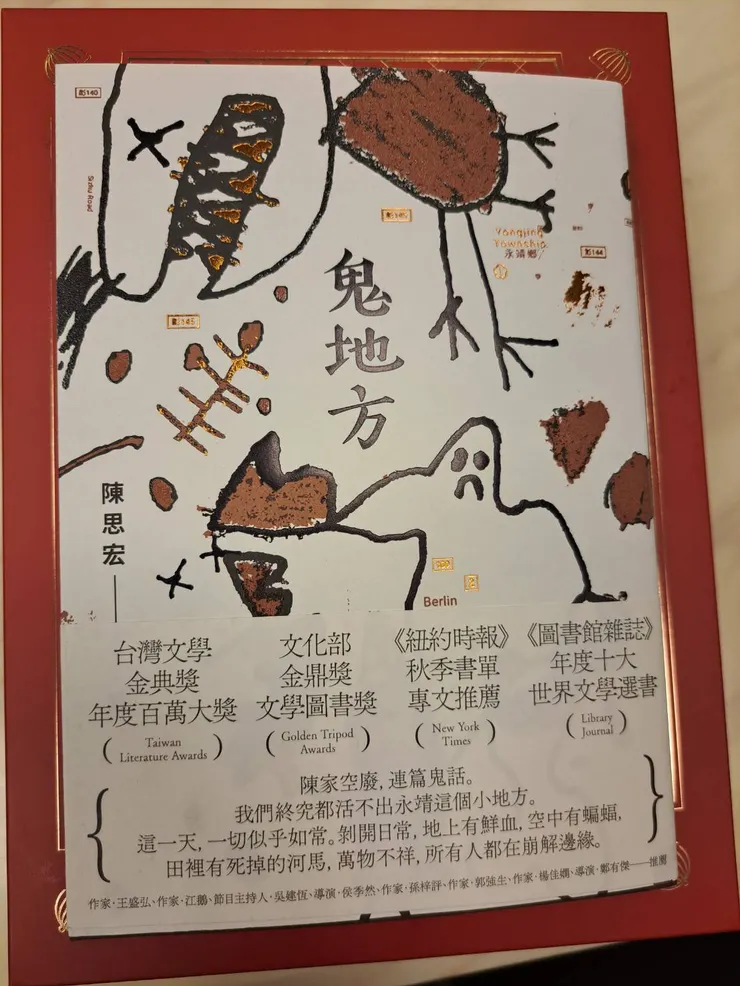 彰140
Sihu Road
彰145
Yongjing
Township
永靖鄉
彰144
彰145
鬼地方
陳思宏
Berlin
台灣文學
金典獎
年度百萬大獎
(Taiwan
Literature Awards)
文化部
金鼎獎
文學圖書獎
(Golden Tripod
Awards)
《紐約時報》
秋季書單
專文推薦
(New York
Times)
《圖書館雜誌》
年度十大
世界文學選書
(Library
Journal)
陳家空廢,連篇鬼話。
我們終究都活不出永靖這個小地方。
這一天,一切似乎如常。剝開日常,地上有鮮血,空中有蝙蝠,
田裡有死掉的河馬,萬物不祥,所有人都在崩解邊緣。
作家·王盛弘、作家·江鵝、節目主持人·吳建恆、導演·侯季然、作家·孫梓評、作家·郭強生、作家·楊佳嫻、導演·鄭有傑——推薦